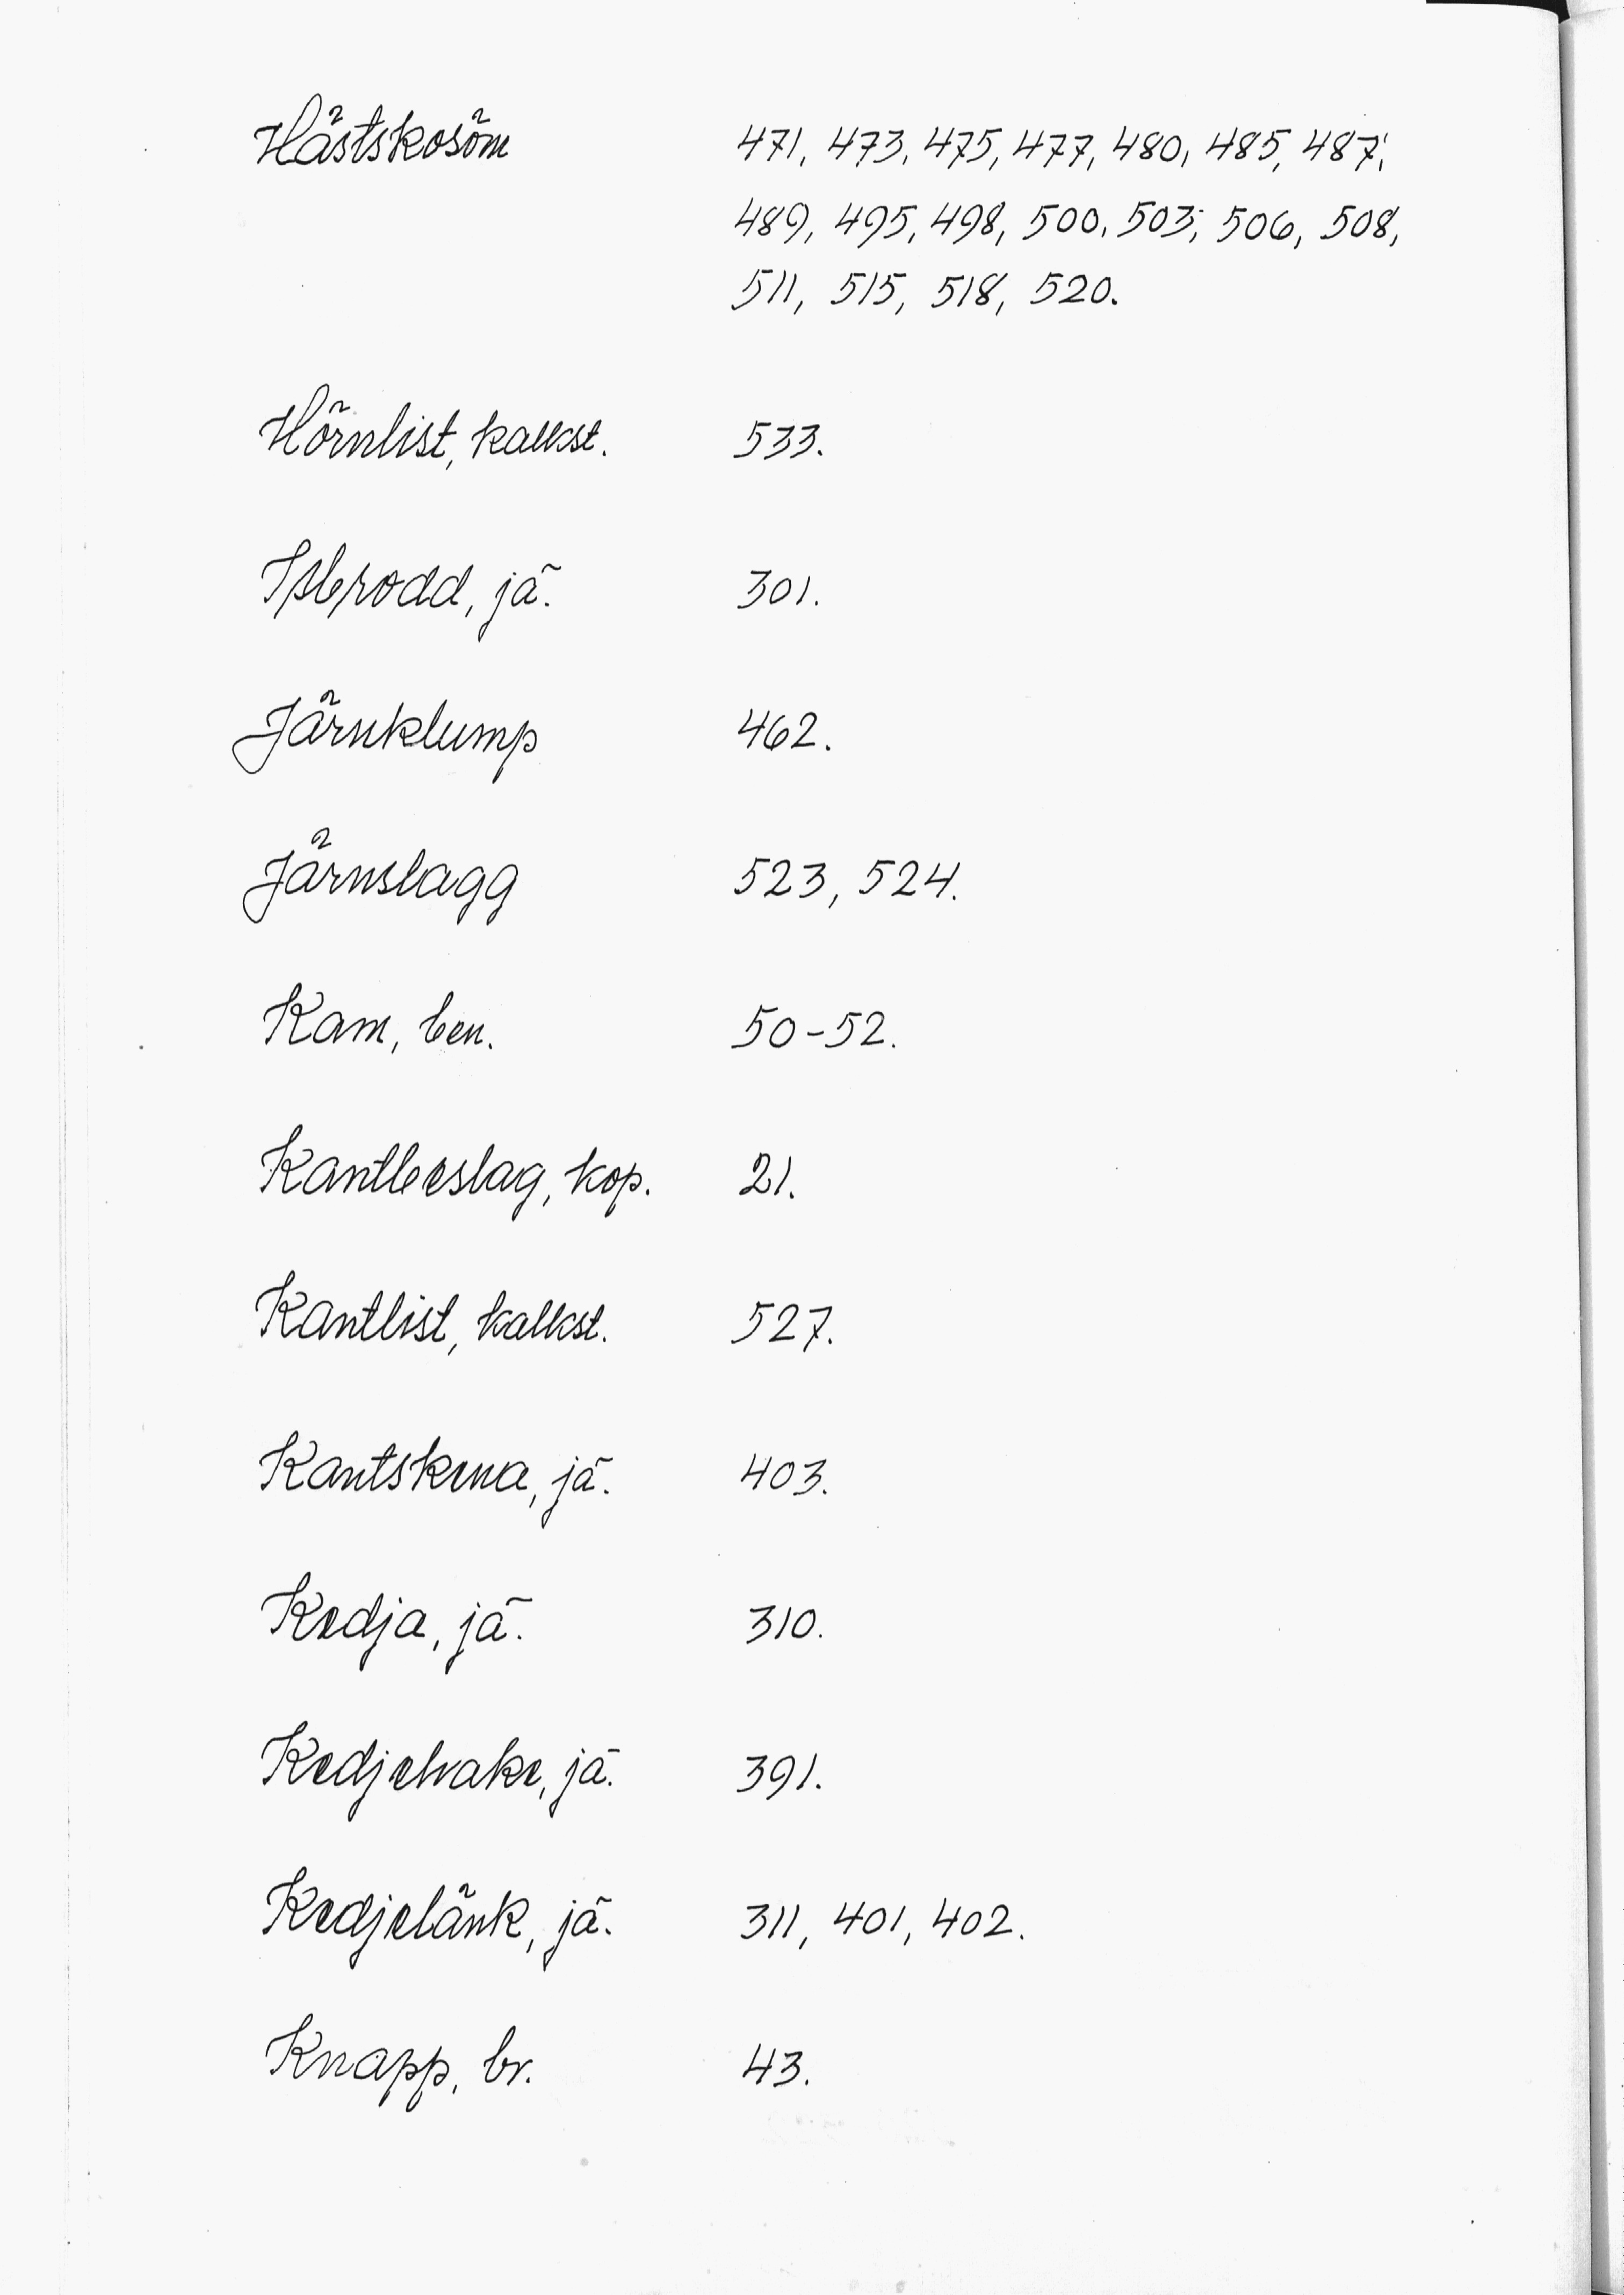 Hästskosöm 471, 473, 475, 477, 480, 485, 487,
489, 495, 498, 500, 503, 506, 508,
511, 515, 518, 520.
Hörnlist, kalkst. 533.
Isbrodd, jä. 301.
Järnklump 462.
Järnslagg 523, 524.
Kam, ben. 50-52.
Kantbeslag, kop. 21.
Kantlist, kalkst. 527.
Kantskena, jä. 403.
Kedja, jä. 310.
Kedjehake, jä. 391.
Kedjelänk, jä. 311, 401, 402.
Knapp, br. 43.